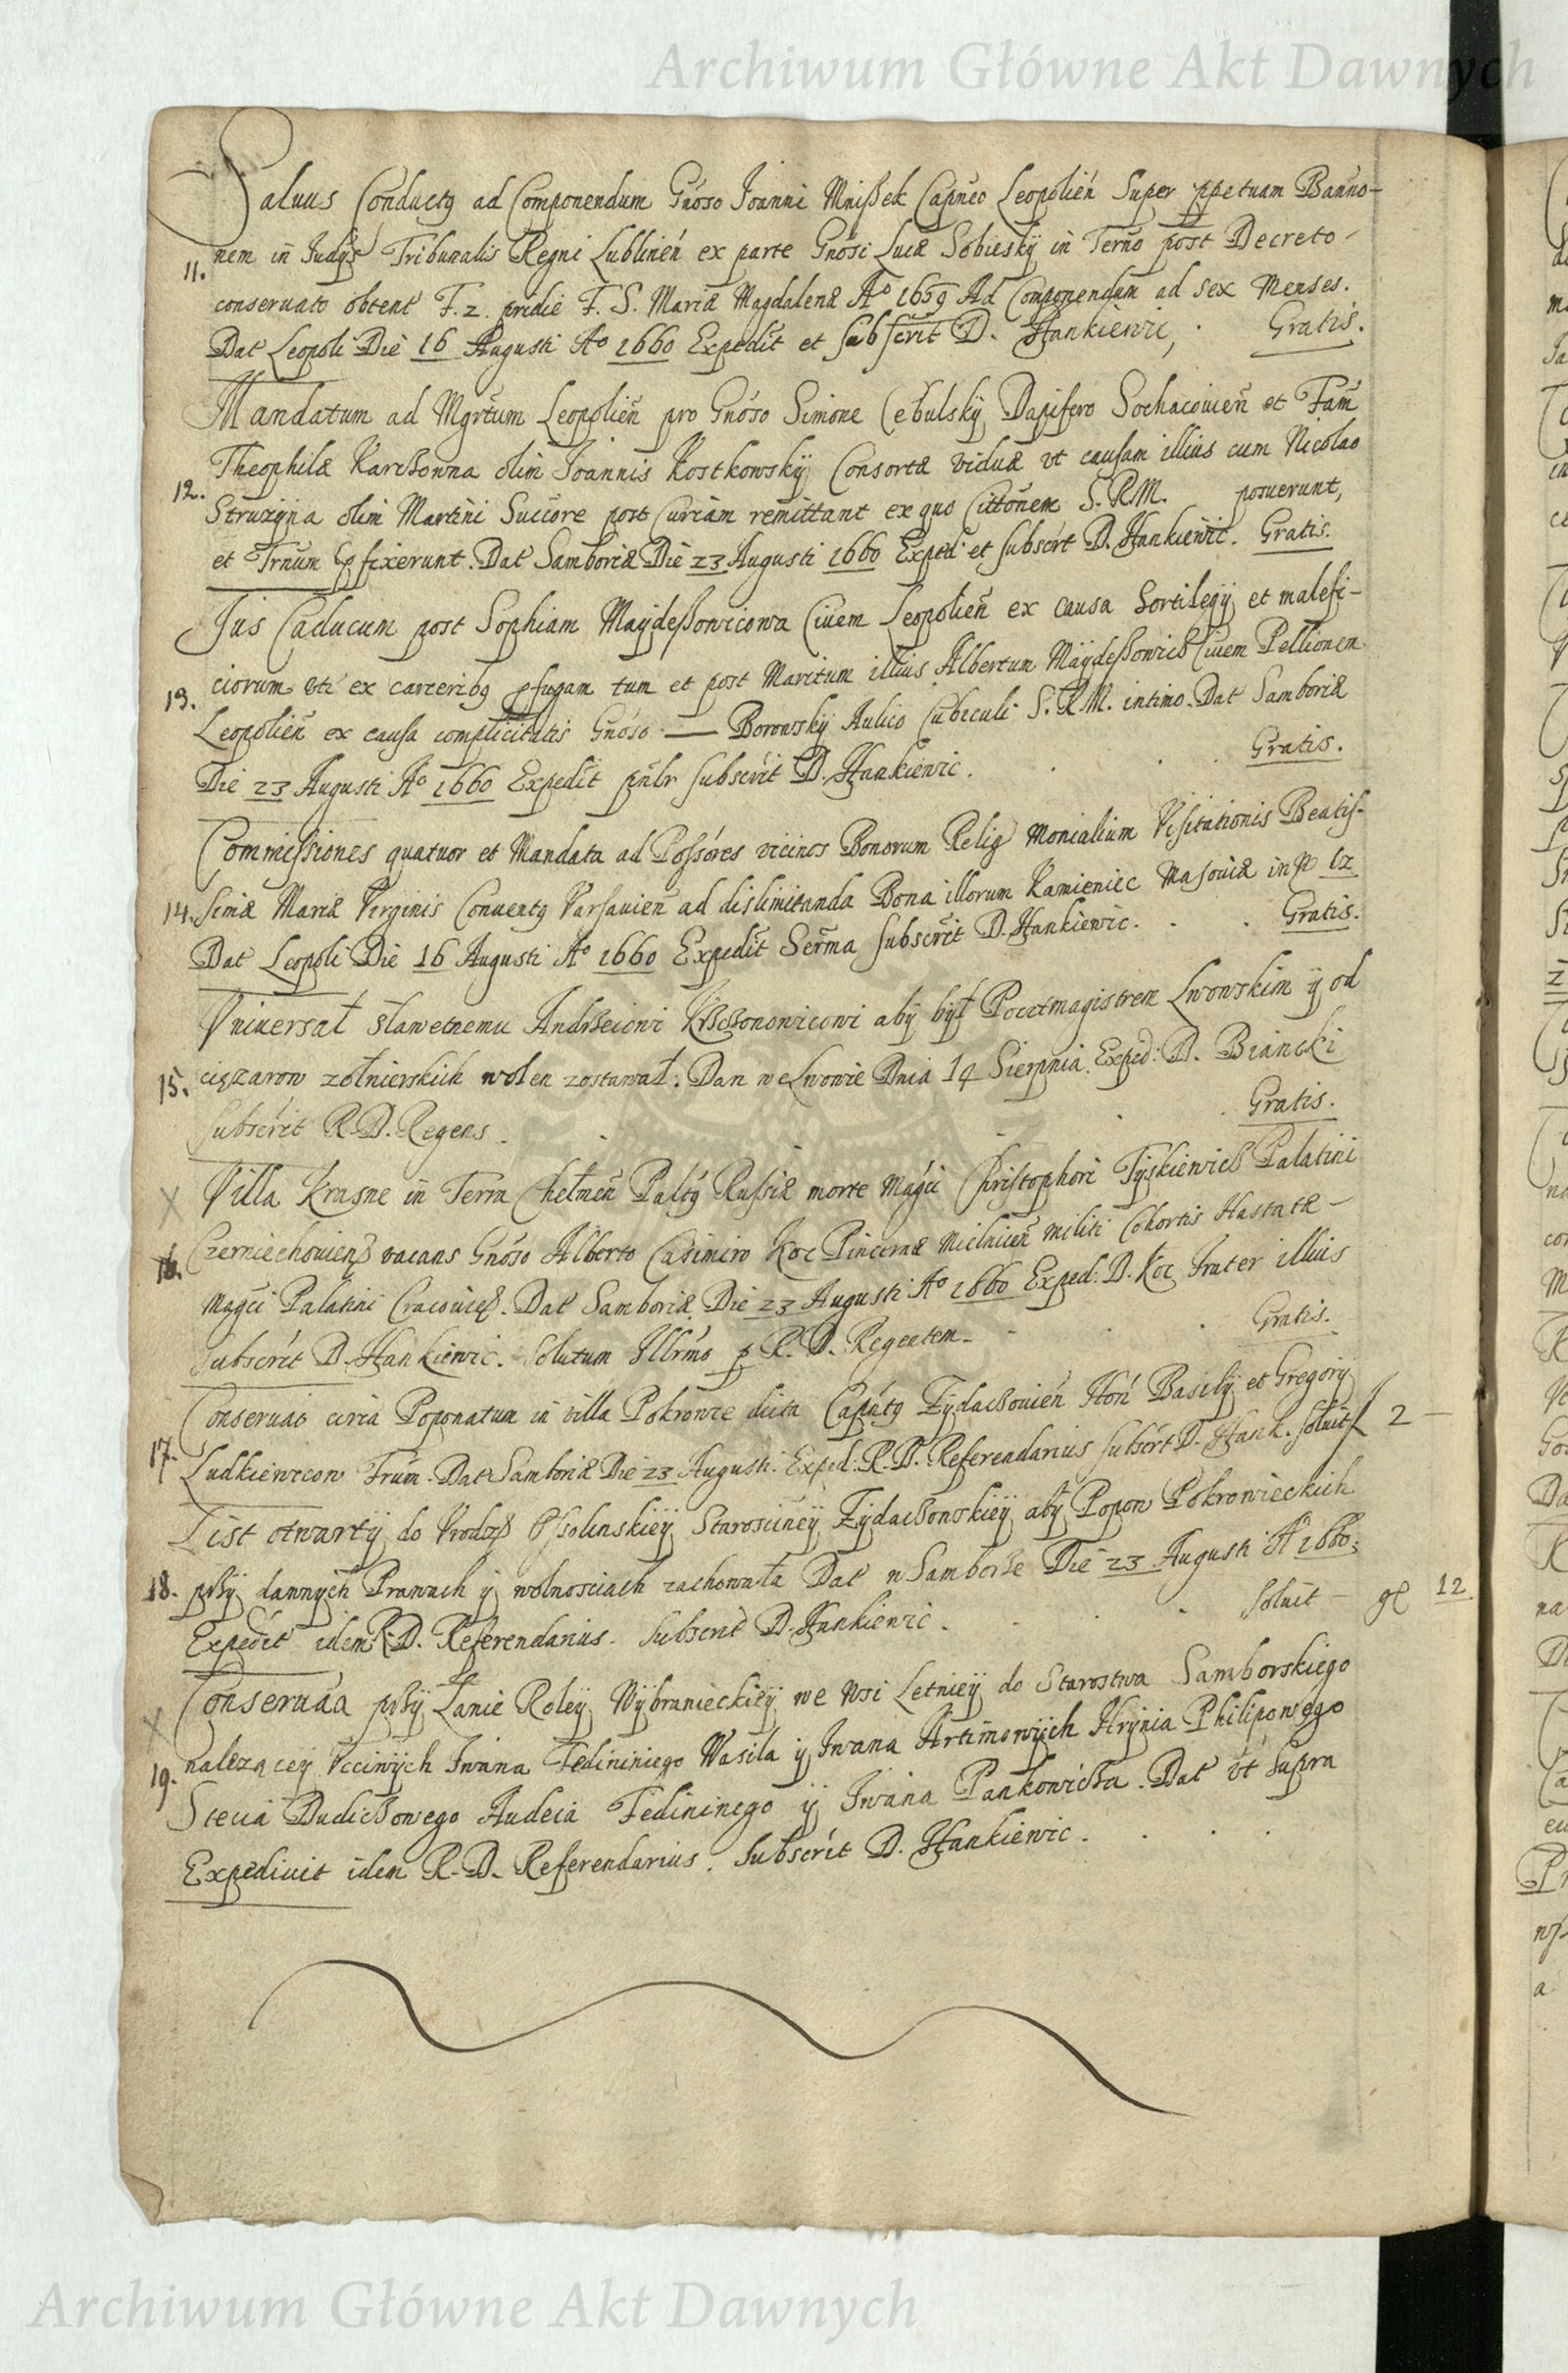 Archiwum Główne Akt Dawnych
Saluus Conductq ad Componendum Gnoso Joanni Mnißek Capneo Leopolień Super ppetuam Banno-
11. nem in Judÿs Tribunalis Regni Lublinen ex parte Gnosi Lucæ Sobieskÿ in Termo post Decreto-
conseruato obtent F. 2. pridie F. S. Mariæ Magdalenæ Aº 1659 Ad Componendum ad sex Menses.
Dat Leopoli Die 16 Augusti Aº 1660 Expedit et subscrit D. Hankiewic, Gratis.
Mandatum ad Mgrtum Leopolień pro Gnoso Simone Cebulskÿ Dapifero Sochacouień et Fam
Theophilæ Karchowna olim Joannis Kostkowskÿ Consortæ viduæ vt causam illius cum Nicolao
12. Struzÿna olim Martini Succore post Curiam remittant ex quo Cittonem S. R. M. posuerunt,
et Trnum pfixerunt. Dat Samboriæ Die 23 Augusti 1660 Exped: et subscrt D. Hankiewic. Gratis.
Jus Caducum post Sophiam Maÿdeßowicowa Ciuem Leopolień ex causa Sortilegÿ et malefi-
13. ciorum vti ex carceribq pfugam tum et post Maritum illius Albertum Maÿdeßowicz Ciuem Pellionem
Leopolień ex causa complicitatis Gnoso — Borowskÿ Aulico Cubiculi S. R. M. intimo. Dat Samboriæ
Die 23 Augusti Aº 1660 Expedit pnlr subscrit D. Hankiewic. Gratis.
Commissiones quatuor et Mandata ad Possores vicinos Bonorum Relig Monialium Visitationis Beatis-
14. simæ Mariæ Virginis Conuentq Varsauień ad dislimitanda Bona illorum Kamieniec Masouiæ in No 12
Dat Leopoli Die 16 Augusti Aº 1660 Expedit Serma subscrit D. Hankiewic. Gratis.
Vniuersał sławetnemu Andrzeiowi Krzczonowicowi abÿ bÿł Pocztmagistrem Lwowskim ÿ od
15. cięzarow zołnierskich wolen zostawał. Dan we Lwowie Dnia 14 Sierpnia. Exped: D. Biancki
Subscrit R. D. Regens. Gratis.
X Villa Krasne in Terra Chełmeń Paltq Russiæ morte Magci Christophori Tÿskiewicz Palatini
16. Czerniechouień vacans Gnoso Alberto Casimiro Koc Pincernæ Mielnicen militi Cohortis Hastatæ-
Magci Palatini Cracouień. Dat Samboriæ Die 23 Augusti Aº 1660 Exped: D. Koc Frater illius
Subscrit D. Hankiewic. Solutum Illrmo p R. D. Regentem. Gratis.
Conseruao circa Poponatum in villa Pokrowce dicta Capntq Zÿdaczouień Hon Basilÿ et Gregorÿ
17. Ludkiewicow Frum. Dat Samboriæ Die 23 Augusti. Exped: R. D. Referendarius subscrt D. Hank. soluit f 2 —
List otwartÿ do Vrodz Ossolinskieÿ Staroscineÿ Zÿdaczowskieÿ abÿ Popow Pokrowieckich
18. przÿ dawnÿch Prawach ÿ wolnosciach zachowała Dat w Samborze Die 23 Augusti A 1660.
Expedit idem R. D. Referendarius. Subscrit D. Hankiewic. Soluit — gl 12
X Conseruaa przÿ Łanie Roleÿ Wÿbranieckieÿ we Wsi Letnieÿ do Starostwa Samborskiego
19. nalezącey Vcciwÿch Iwana Fedininiego Wasila ÿ Iwana Artimowÿch Hrÿnia Philipowego
Stecia Dudiczowego Audeia Fedininego ÿ Iwana Pankowicza. Dat vt supra
Expediuit idem R. D. Referendarius. Subscrit D. Hankiewic.
Archiwum Główne Akt Dawnych